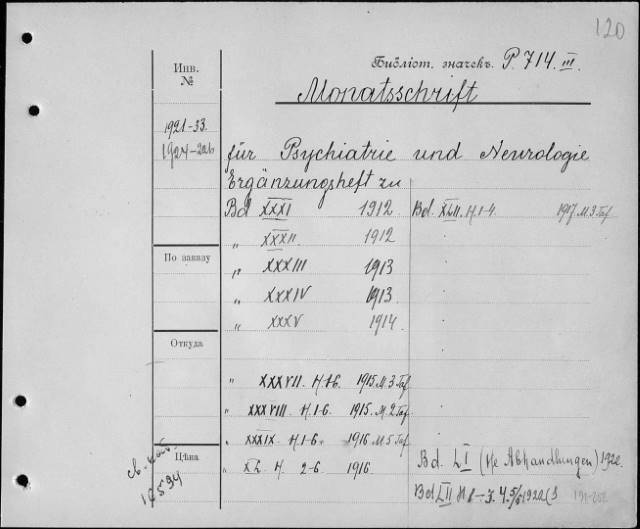 120
Библіот. значекъ. P. 714. III.
Инв. №
Monatsschrift
1921-33.
1924-226
für Psychiatrie und Neurologie
Ergänzungsheft zu
Bd XXXI 1912. Bd. XLII. H. 1-4. 1917. M. 3. Taf
„ XXXII. 1912
По заказу
„ XXXIII 1913
„ XXXIV 1913
„ XXXV 1914
Откуда
„ XXXVII. H. 1-6. 1915. M. 3 Taf
„ XXXVIII. H. 1-6. 1915. M. 2 Taf.
„ XXXIX. H. 1-6. 1916 M. 5 Taf.
Цѣна
„ XL. H. 2-6 1916.
Bd. LI (Abhandlungen) 1922
Bd LII H
св. каб.